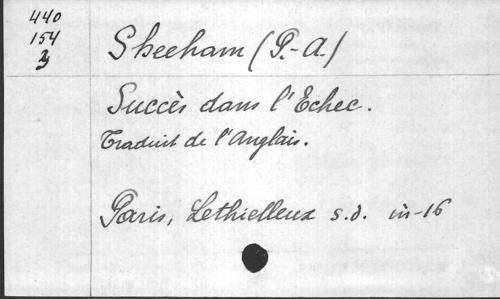 440
154
3
Sheeham (P.-A.)
Succès dans l'Echec.
Traduit de l'Anglais.
Paris, Lethielleux s.d. in-16